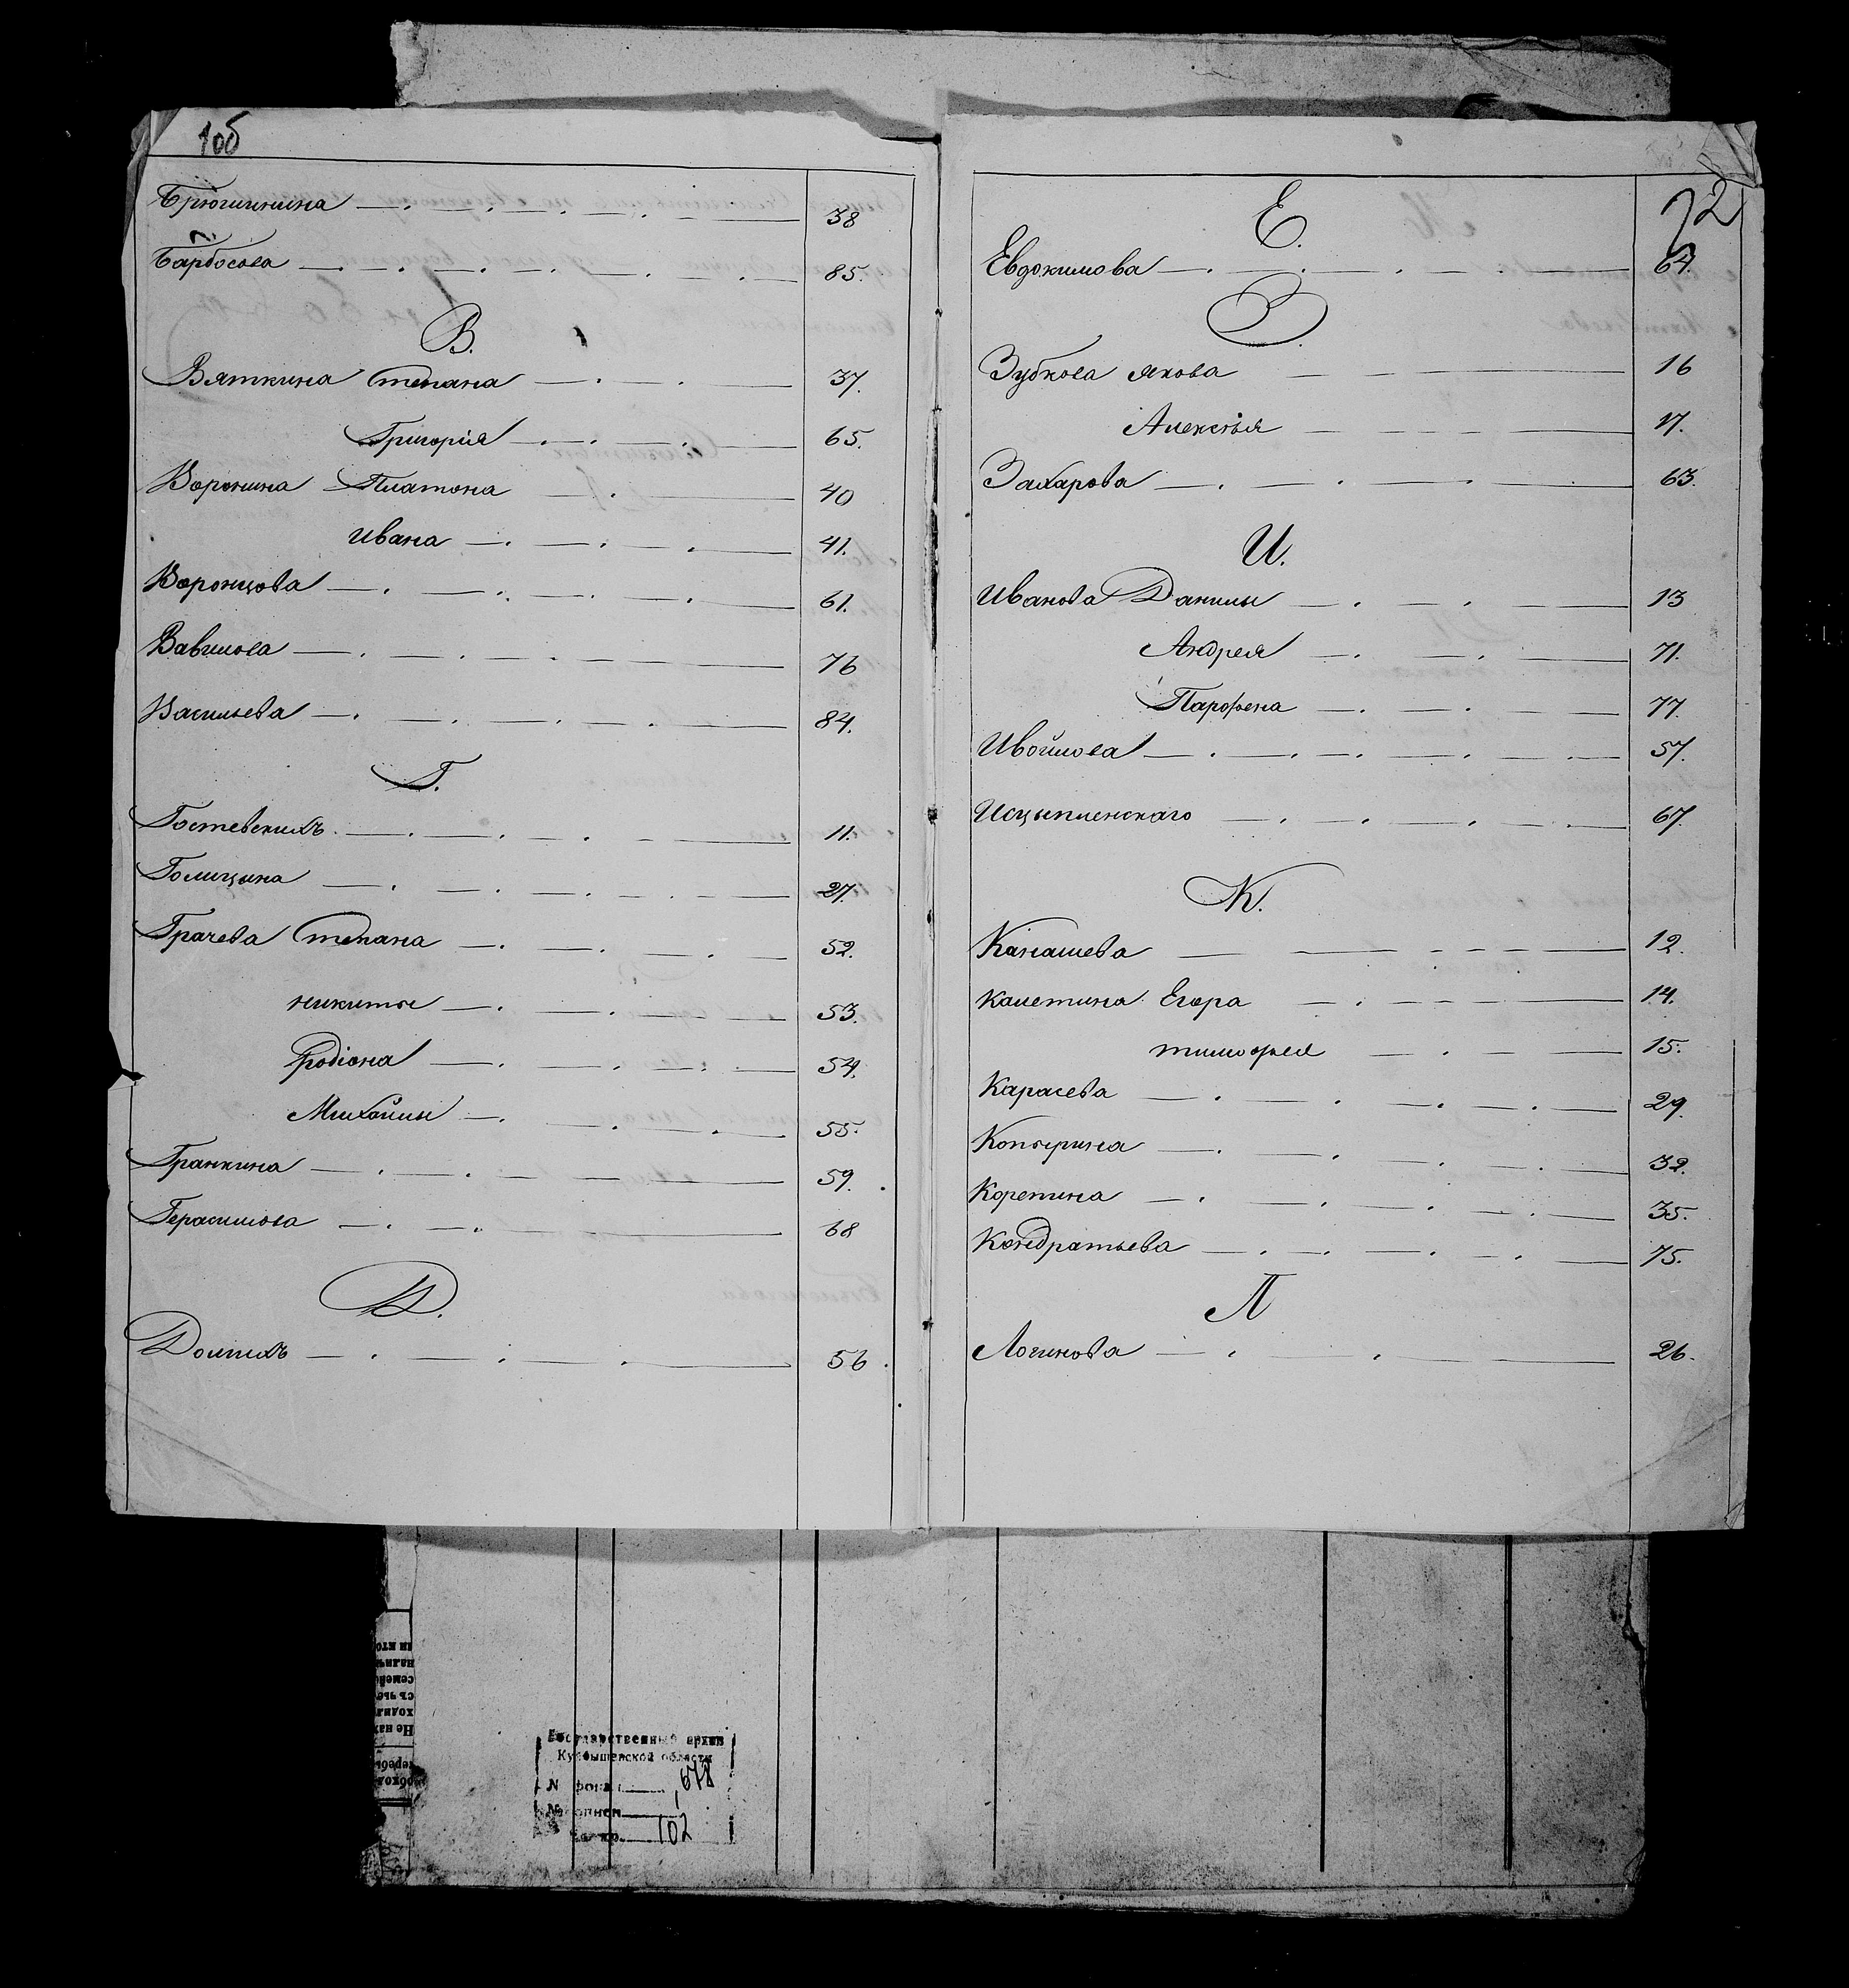 1об
Брюшинина 38
Барбосова 85.
В.
Вяткина Степана 37.
Григорія 65.
Воронина Платона 40
Ивана 41.
Воронцова 61.
Вавилова 76
Васильева 84.
Г.
Гостевскихъ 11.
Голицына 27.
Грачева Степана 52.
Никиты 53.
Родіона 54.
Михайлы 55.
Гранкина 59.
Герасимова 68
Д.
Долгихъ 56.
2
Е.
Евдокимова 64.
З.
Зубкова Якова 16
Алексѣя 17.
Захарова 63.
И.
Иванова Данилы 13
Андрея 71.
Парфена 77.
Ивойлова 57.
Исцыпленскаго 67.
К.
Канашева 12.
Калетина Егора 14.
Тимофея 15.
Карасева 29.
Копырина 32.
Корепина 35.
Кондратьева 75.
Л
Логинова 26.
Государственный архив
Куйбышевской области
№ фонда 678
№ описи 1
102